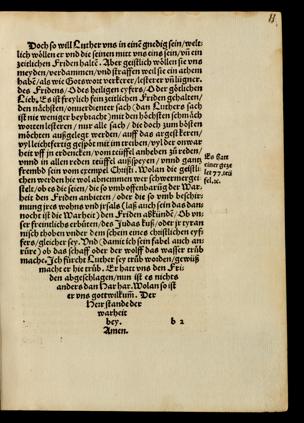 Doch so will Luther vns in einẽ gnedig sein/ welt-
lich wöllen er vnd die seinen mitt vns eins sein/ vñ ein
zeitlichen Friden haltẽ. Aber geistlich wöllen sie vns
meyden/ verdammen/ vnd straffen weil sie ein athem
habẽ/ als wie Gotswort verkerer/ lesterer vñ lügner.
des Fridens/ O des heiligen eyfers/ O der götlichen
Lieb. Es ist freylich sein zeitlichen Friden gehalten/
den nächsten/ vnuerdienter sach (dan Luthers sach
ist nie weniger beybracht) mit den höchsten schmäch
worten lesteren/ nur alle sach/ die doch zum bösten
möchten außgelegt werden/ auff das argest keren/
vyl leichtfertig gespöt mit im treiben/ vyl der onwar
heit vff in erdencken/ vom teüffel anheben zů reden/
vnnd in allen reden teüffel außspeyen/ vnnd gantz
frembd sein vom exempel Christi. Wolan die geistli-
chen werden hie wol abnemmen wer schwermer
stelt/ ob es die seien/ die so vmb offenbarũg der War-
heit den Friden anbieten/ oder die so vmb beschir-
mung irs wohns vnd irsals (laß auch sein das dan-
nocht ist die Warheit) den Friden abkündẽ/ Ob vn-
ser freintliches erbüten/ des Judas kuß/ oder ir tyran
nisch bohen vnder dem schein eines christlichen eyf-
fers/ gleicher sey. Vnd (damit ich sein fabel auch an-
rüre) ob das schaff oder der wolff das wasser trüb
mache. Jch fürcht Luther sey trüb worden/ gewüß
mache er hie trüb. Er hatt vns den Fri-
den abgeschlagen/ nun ist es nichts
anders dan Har har. Wolan so ist
er vns gottwilkum̃. Der
Herr stande der
warheit
bey.
Amen.
b 2
Es statt